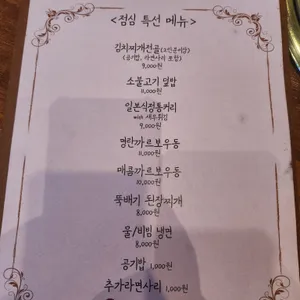 <점심 특선 메뉴>
김치찌개전골(2인분이상)
(공기밥, 라면사리 포함)
9,000원
소불고기 덮밥
11,000원
일본식정통커리
with 새우튀김
9,000원
명란까르보우동
11,000원
매콤까르보우동
10,000원
뚝배기 된장찌개
8,000원
물/비빔 냉면
8,000원
공기밥 1,000원
추가라면사리 1,000원